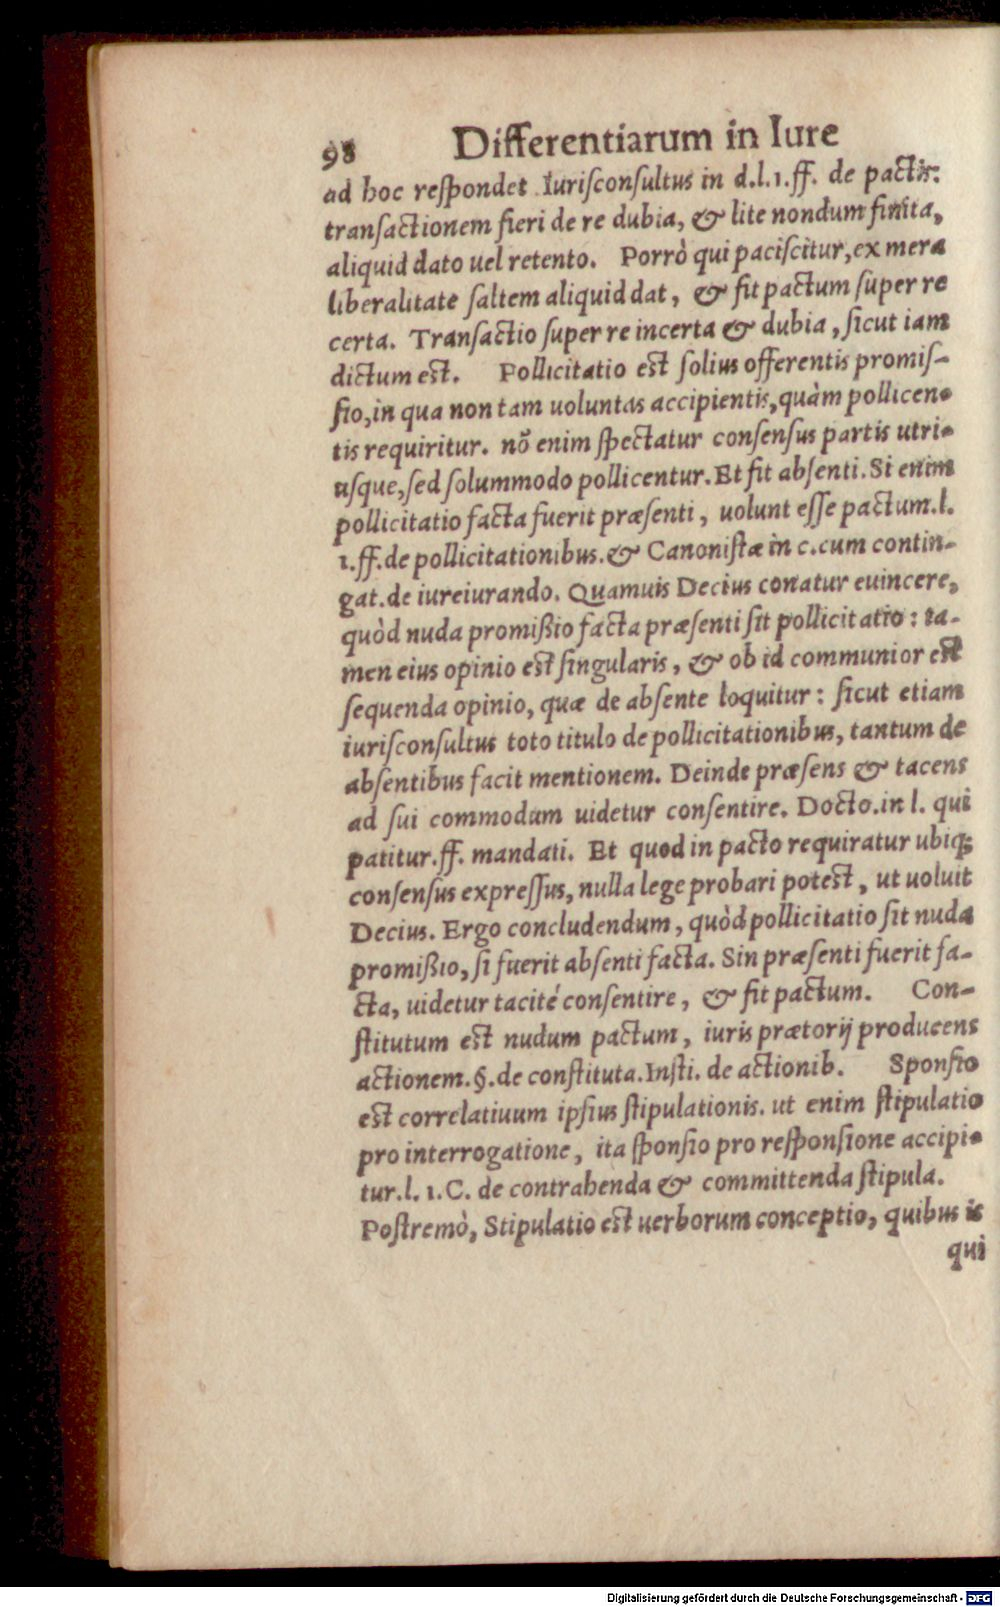 98 Differentiarum in Iure
ad hoc respondet Iurisconsultus in d.l.1.ff. de pactis:
transactionem fieri de re dubia, & lite nondum finita,
aliquid dato uel retento. Porrò qui paciscitur, ex mera
liberalitate saltem aliquid dat, & fit pactum super re
certa. Transactio super re incerta & dubia, sicut iam
dictum est. Pollicitatio est solius offerentis promis-
sio, in qua non tam uoluntas accipientis, quàm pollicen-
tis requiritur. nõ enim spectatur consensus partis utri-
usque, sed solummodo pollicentur. Et fit absenti. Si enim
pollicitatio facta fuerit præsenti, uolunt esse pactum.l.
1.ff.de pollicitationibus.& Canonistæ in c.cum contin-
gat.de iureiurando. Quamuis Decius conatur euincere,
quòd nuda promißio facta præsenti sit pollicitatio: ta-
men eius opinio est singularis, & ob id communior est
sequenda opinio, quæ de absente loquitur: sicut etiam
iurisconsultus toto titulo de pollicitationibus, tantum de
absentibus facit mentionem. Deinde præsens & tacens
ad sui commodum uidetur consentire. Docto.in l. qui
patitur.ff. mandati. Et quod in pacto requiratur ubiq;
consensus expressus, nulla lege probari potest, ut uoluit
Decius. Ergo concludendum, quòd pollicitatio sit nuda
promißio, si fuerit absenti facta. Sin præsenti fuerit fa-
cta, uidetur tacité consentire, & fit pactum. Con-
stitutum est nudum pactum, iuris prætorij producens
actionem.§.de constituta.Insti. de actionib. Sponsio
est correlatiuum ipsius stipulationis. ut enim stipulatio
pro interrogatione, ita sponsio pro responsione accipi-
tur.l. 1.C. de contrahenda & committenda stipula.
Postremò, Stipulatio est uerborum conceptio, quibus is
qui
Digitalisierung gefördert durch die Deutsche Forschungsgemeinschaft - DFG